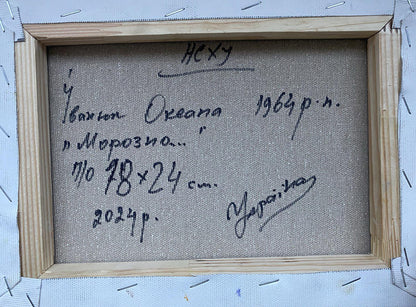 НСХУ
Іванюк Оксана 1964 р.н.
„Морозно..."
п/о 18×24 см.
2024 р. Україна